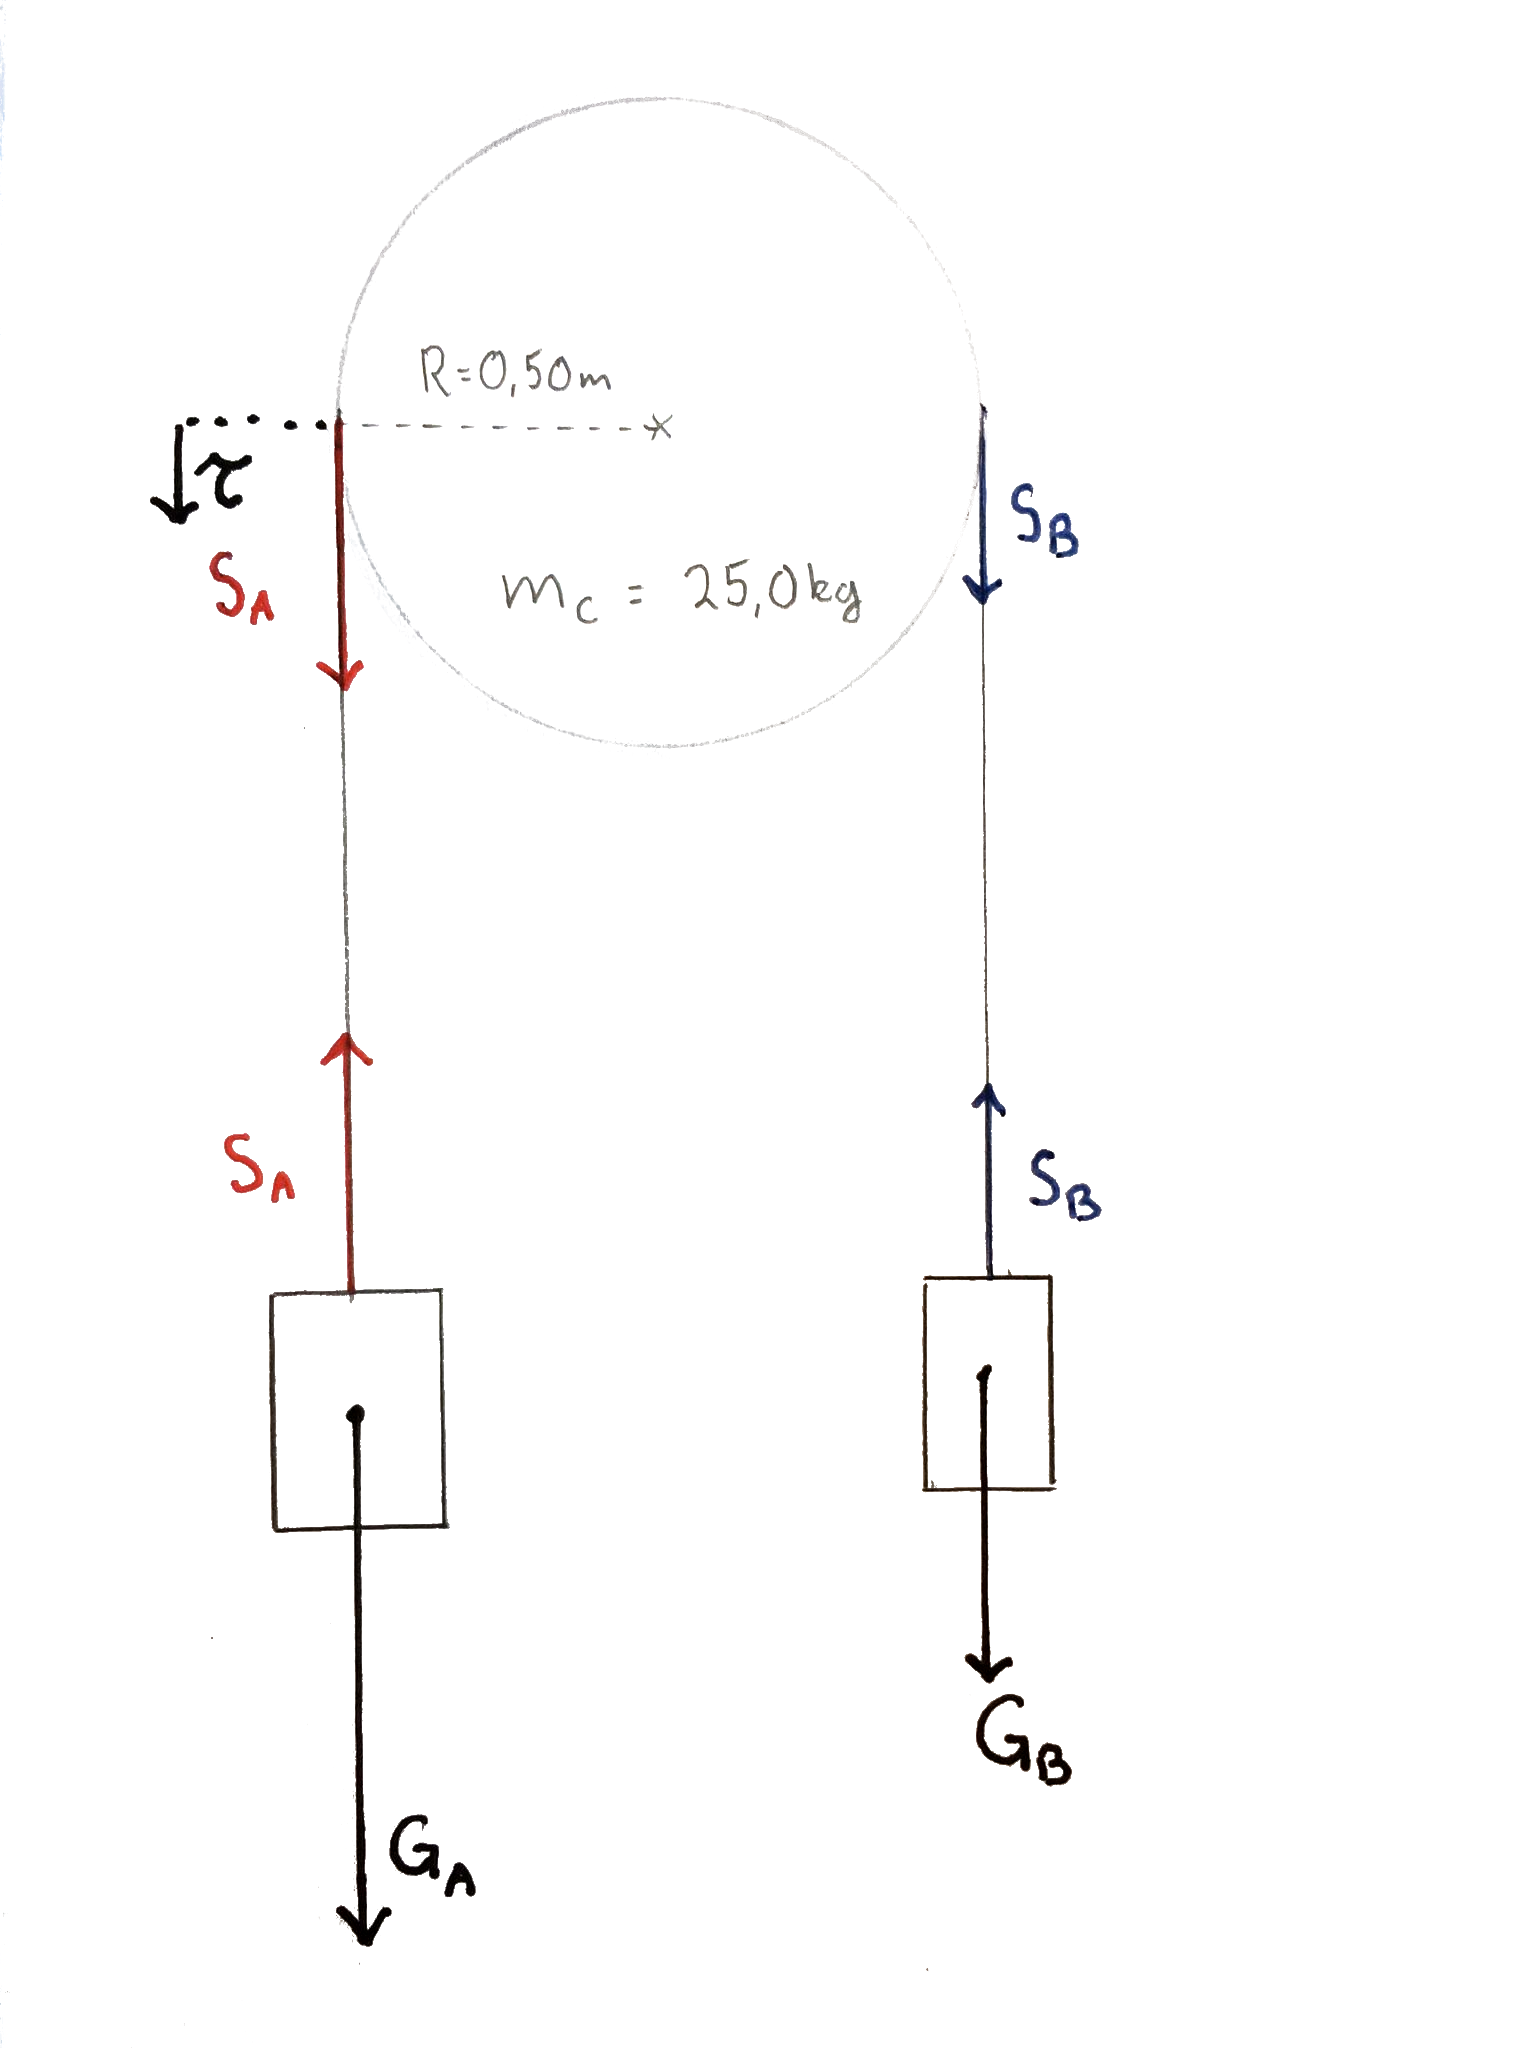 R=0,50m
τ
S_B
S_A
m_c = 25,0kg
S_A
S_B
G_B
G_A